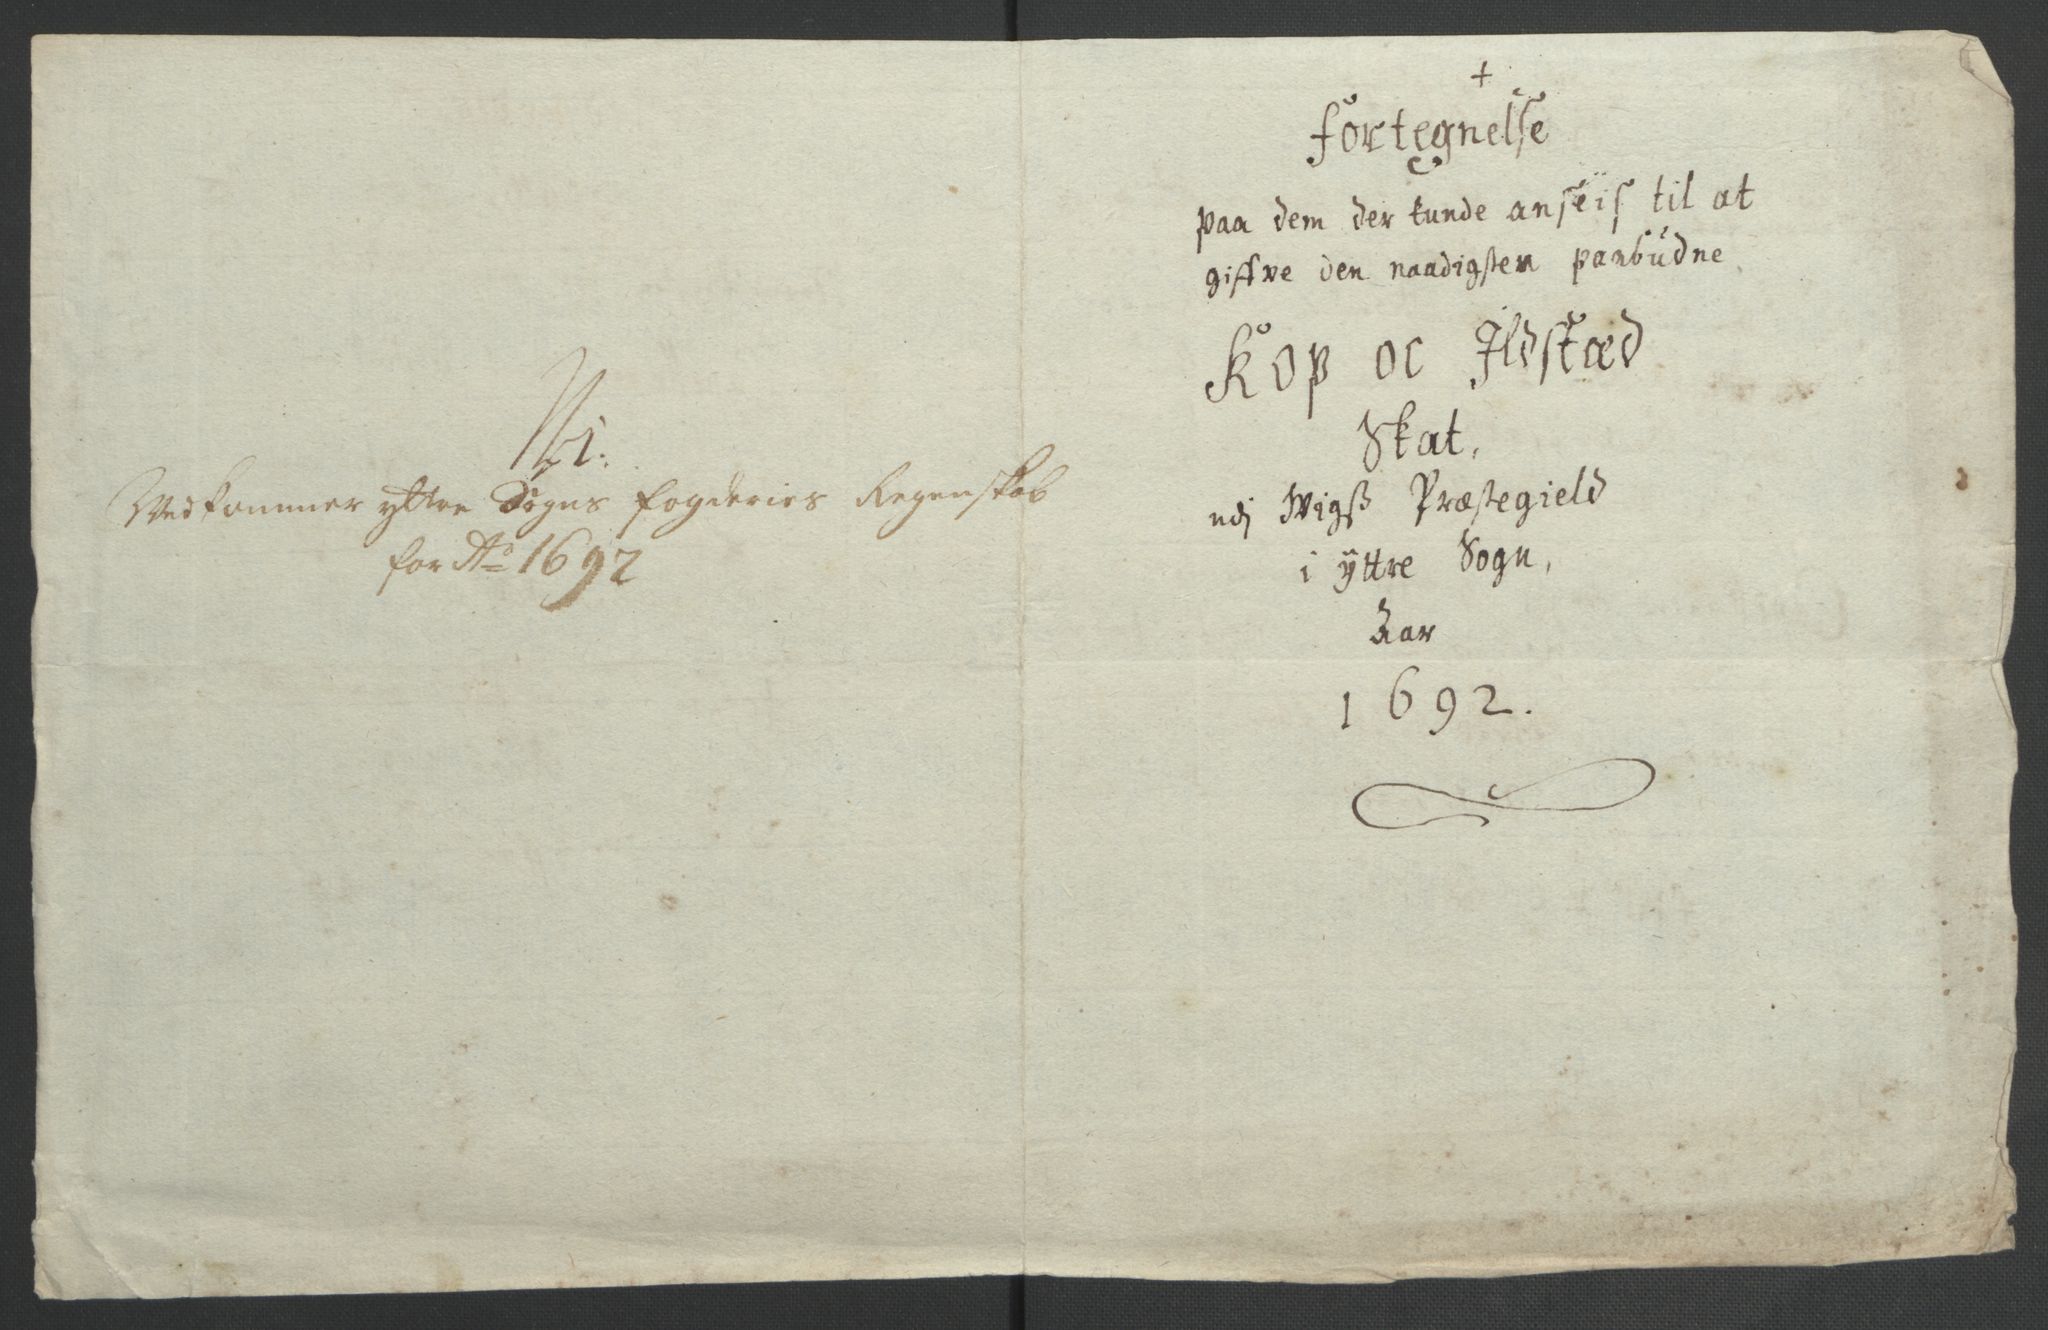 N 1.
Vedkommer yttre Sogns fogderies Regenskab
for Ao 1692
+
Fortegnelse
paa dem der kunde anseis til at
giffve den naadigsten paabudne
Kop oc Ildstæd
Skat,
udj Wigß Præstegield
i ÿttre Sogn,
Aar
1692.